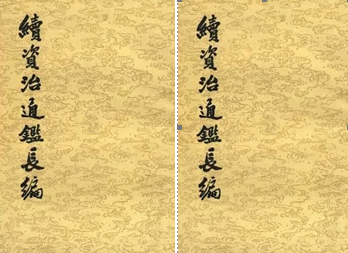 續資治通鑑長編
續資治通鑑長編